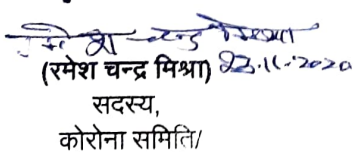 रमेश चन्द्र मिश्रा
(रमेश चन्द्र मिश्रा) 23.11.2020
सदस्य,
कोरोना समिति/